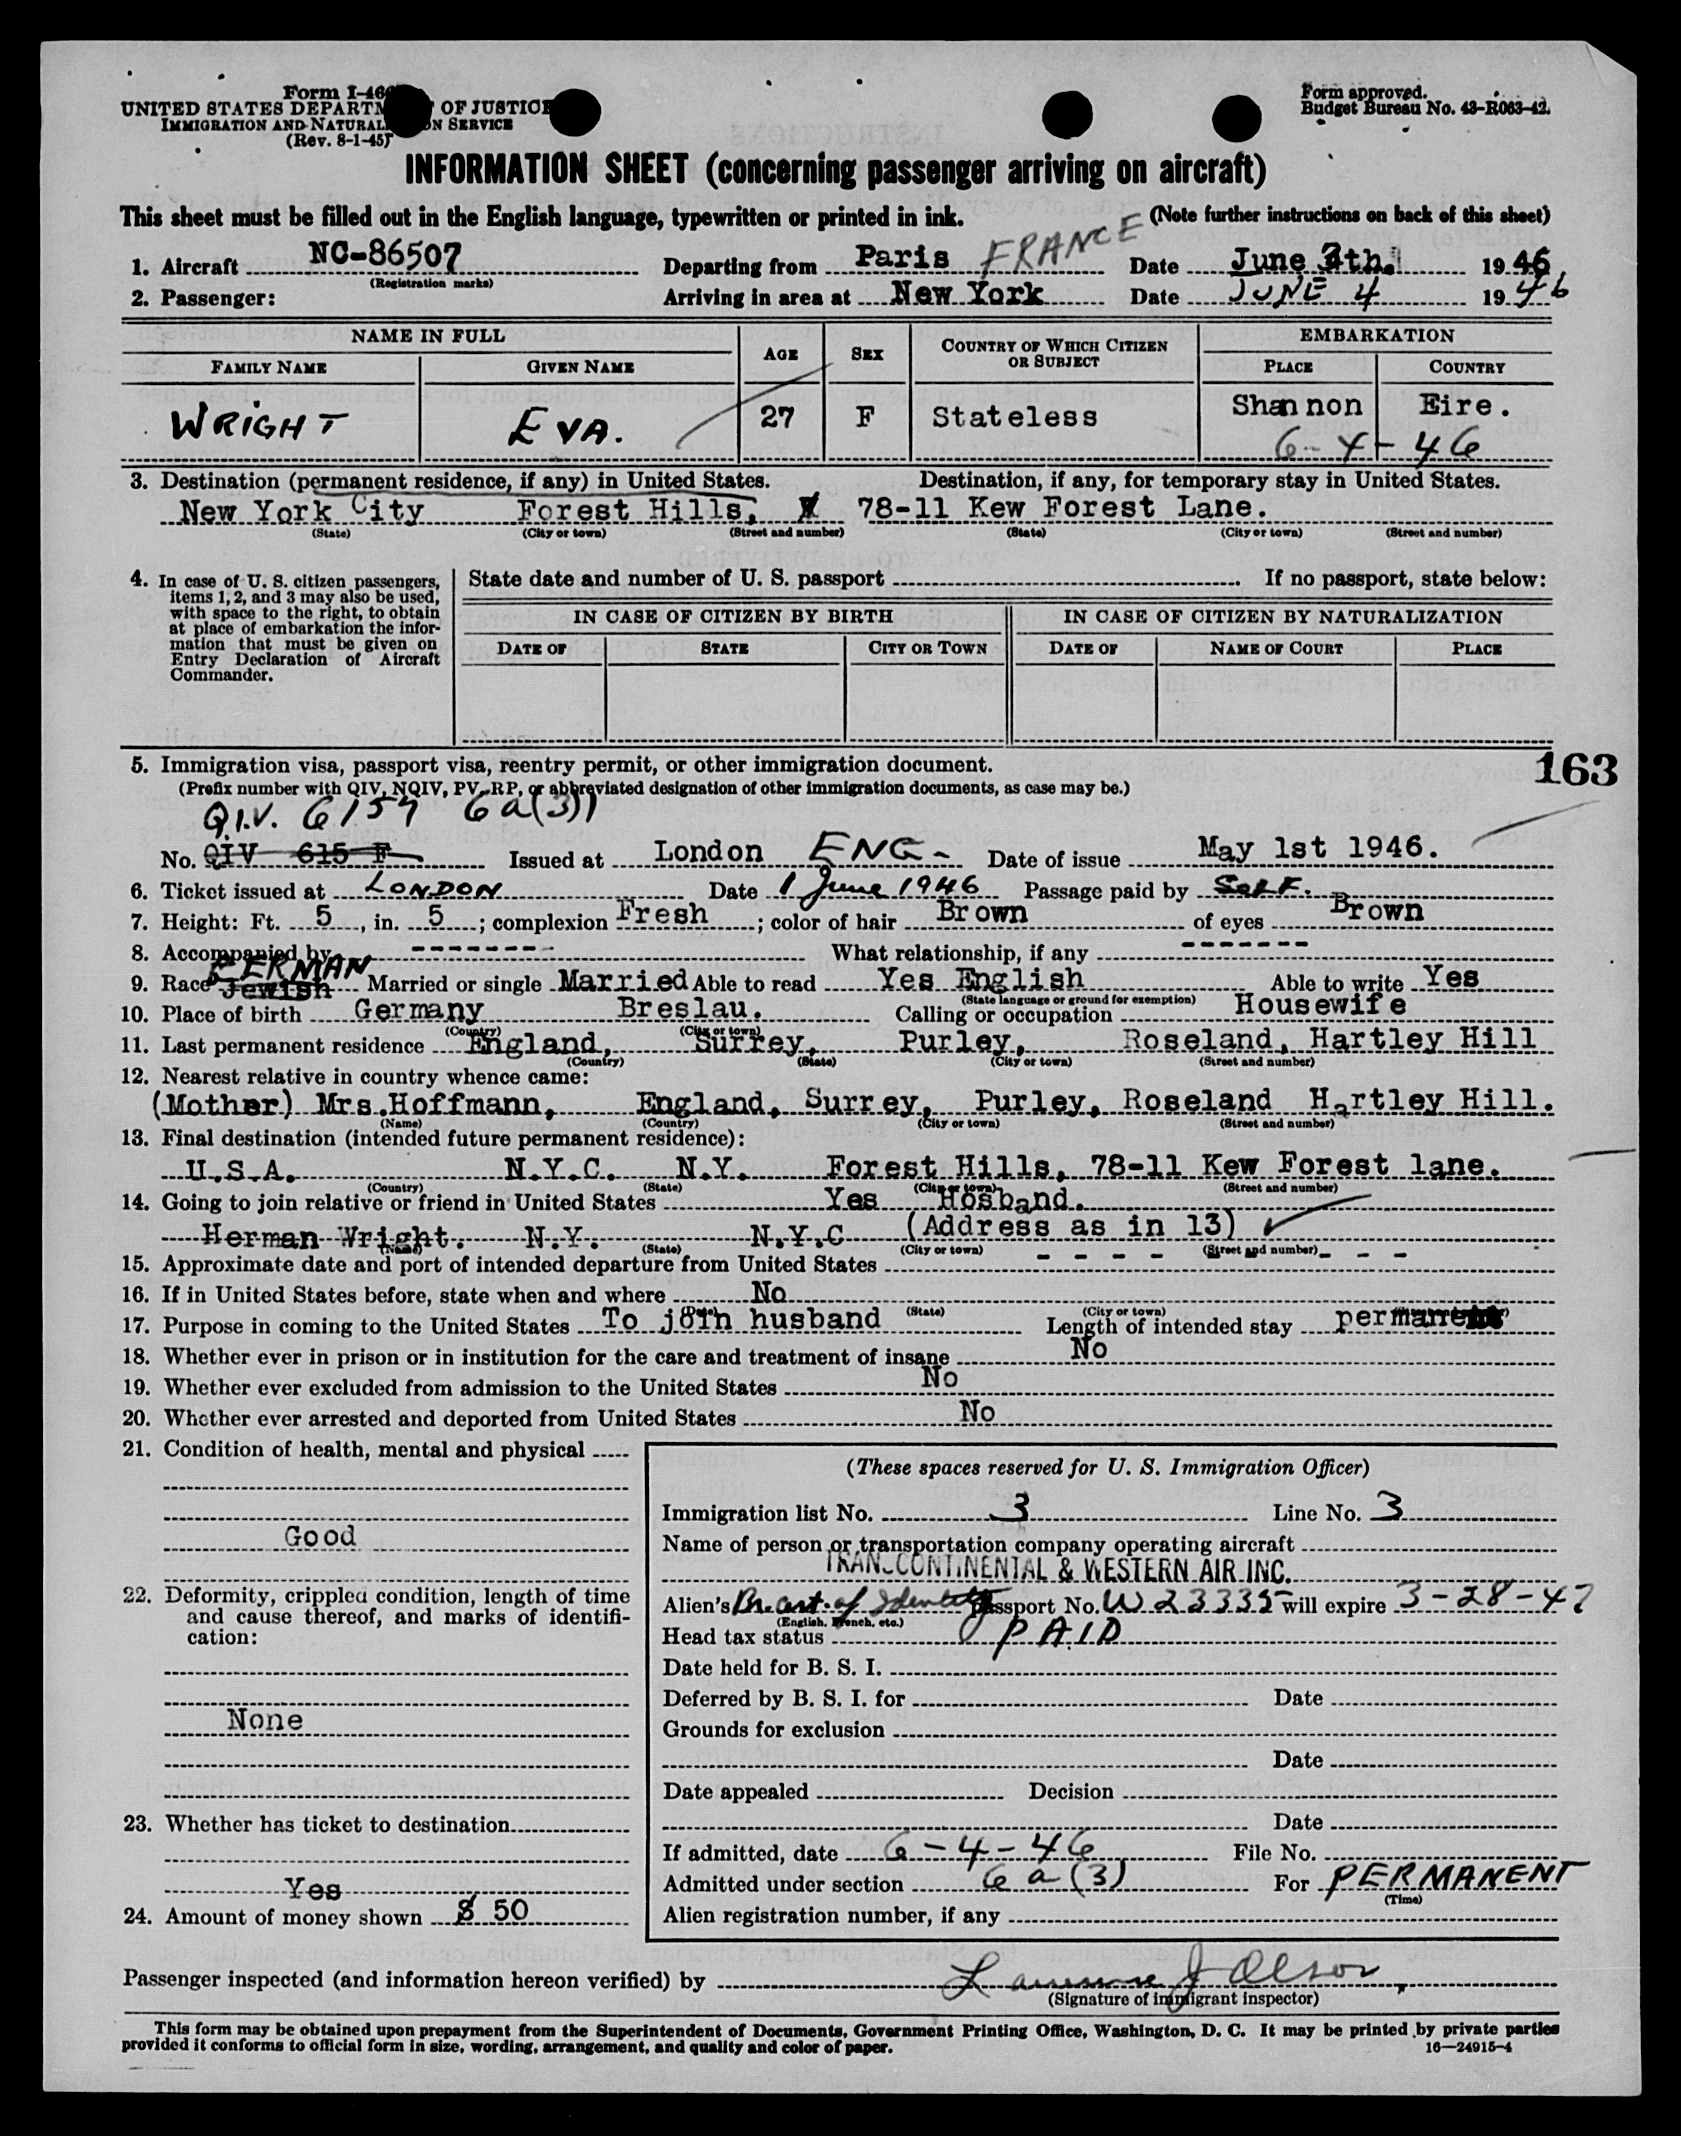 Form I-466
UNITED STATES DEPARTMENT OF JUSTICE
IMMIGRATION AND NATURALIZATION SERVICE
(Rev. 8-1-45)
Form approved.
Budget Bureau No. 43-R063-42.
INFORMATION SHEET (concerning passenger arriving on aircraft)
This sheet must be filled out in the English language, typewritten or printed in ink. (Note further instructions on back of this sheet)
1. Aircraft NC-86507 Departing from Paris FRANCE Date June 3th. 1946,
(Registration marks)
2. Passenger: Arriving in area at New York Date JUNE 4 1946
NAME IN FULL AGE SEX COUNTRY OF WHICH CITIZEN OR SUBJECT EMBARKATION
FAMILY NAME GIVEN NAME PLACE COUNTRY
WRIGHT EVA. 27 F Stateless Shannon Eire.
6-4-46
3. Destination (permanent residence, if any) in United States. Destination, if any, for temporary stay in United States.
New York City Forest Hills, 78-11 Kew Forest Lane.
(State) (City or town) (Street and number) (State) (City or town) (Street and number)
4. In case of U. S. citizen passengers, items 1, 2, and 3 may also be used, with space to the right, to obtain at place of embarkation the information that must be given on Entry Declaration of Aircraft Commander.
State date and number of U. S. passport If no passport, state below:
IN CASE OF CITIZEN BY BIRTH IN CASE OF CITIZEN BY NATURALIZATION
DATE OF STATE CITY OR TOWN DATE OF NAME OF COURT PLACE
163
5. Immigration visa, passport visa, reentry permit, or other immigration document.
(Prefix number with QIV, NQIV, PV, RP, or abbreviated designation of other immigration documents, as case may be.)
Q.I.V. 6157 6a(3)
No. QIV 615 F Issued at London ENG- Date of issue May 1st 1946.
6. Ticket issued at LONDON Date 1 June 1946 Passage paid by SELF.
7. Height: Ft. 5, in. 5; complexion Fresh; color of hair Brown of eyes Brown
8. Accompanied by ------- What relationship, if any -------
9. Race GERMAN Jewish Married or single Married Able to read Yes English Able to write Yes
(State language or ground for exemption)
10. Place of birth Germany Breslau. Calling or occupation Housewife
(Country) (City or town)
11. Last permanent residence England, Surrey, Purley, Roseland, Hartley Hill
(Country) (State) (City or town) (Street and number)
12. Nearest relative in country whence came:
(Mother) Mrs.Hoffmann, England, Surrey, Purley, Roseland Hartley Hill.
(Name) (Country) (City or town) (Street and number)
13. Final destination (intended future permanent residence):
U.S.A. N.Y.C. N.Y. Forest Hills, 78-11 Kew Forest lane.
(Country) (State) (City or town) (Street and number)
14. Going to join relative or friend in United States Yes Hosband.
Herman Wright. N.Y. N.Y.C (Address as in 13)
(Name) (State) (City or town) (Street and number)
15. Approximate date and port of intended departure from United States - - - - - - -
16. If in United States before, state when and where No
(Date) (State) (City or town)
17. Purpose in coming to the United States To join husband Length of intended stay permanent
18. Whether ever in prison or in institution for the care and treatment of insane No
19. Whether ever excluded from admission to the United States No
20. Whether ever arrested and deported from United States No
21. Condition of health, mental and physical
Good
22. Deformity, crippled condition, length of time and cause thereof, and marks of identification:
None
23. Whether has ticket to destination
Yes
24. Amount of money shown $ 50
(These spaces reserved for U. S. Immigration Officer)
Immigration list No. 3 Line No. 3
Name of person or transportation company operating aircraft
TRANSCONTINENTAL & WESTERN AIR INC.
Alien's Br. Cert. of Identity passport No. W 23335 will expire 3-28-47
(English, French, etc.)
Head tax status PAID
Date held for B. S. I.
Deferred by B. S. I. for Date
Grounds for exclusion
Date
Date appealed Decision
Date
If admitted, date 6-4-46 File No.
Admitted under section 6a(3) For PERMANENT
(Time)
Alien registration number, if any
Passenger inspected (and information hereon verified) by Lawrence J Olson
(Signature of immigrant inspector)
This form may be obtained upon prepayment from the Superintendent of Documents, Government Printing Office, Washington, D. C. It may be printed by private parties
provided it conforms to official form in size, wording, arrangement, and quality and color of paper.
16—24915-4